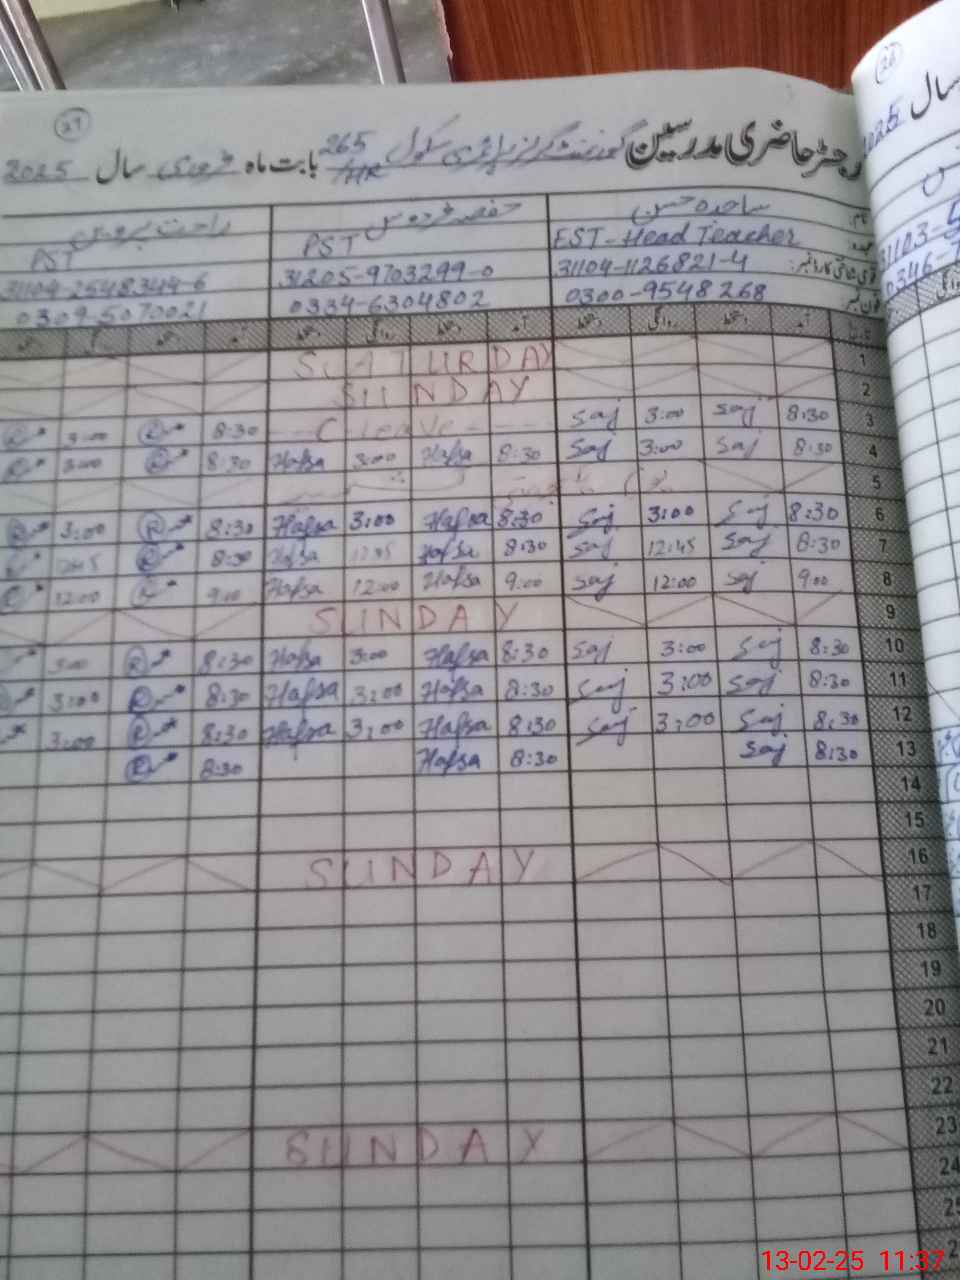 29
رجسٹر حاضری مدرسین گورنمنٹ گرلز پرائمری سکول 265/HR بابت ماہ فروری سال 2025
26
سال 2025
نام: ساجدہ حسن حفصہ فردوس راحت پروین
عہدہ: EST-Head Teacher PST PST
31104-1126821-4 31205-9703299-0 31104-2548344-6
0300-9548268 0334-6304802 0309-5070021
31103-5
0346-7
آمد دستخط روانگی دستخط آمد دستخط روانگی دستخط آمد دستخط روانگی دستخط
1 SATURDAY
2 SUNDAY
3 8:30 Saj 3:00 Saj C leave 8:30 R 3:00 R
4 8:30 Saj 3:00 Saj 8:30 Hafsa 3:00 Hafsa 8:30 R 3:00 R
5
6 8:30 Saj 3:00 Saj 8:30 Hafsa 3:00 Hafsa 8:30 R 3:00 R
7 8:30 Saj 12:45 Saj 8:30 Hafsa 12:45 Hafsa 8:30 R 12:45
8 9:00 Saj 12:00 Saj 9:00 Hafsa 12:00 Hafsa 9:00 R 12:00 R
9 SUNDAY
10 8:30 Saj 3:00 Saj 8:30 Hafsa 3:00 Hafsa 8:30 R 3:00
11 8:30 Saj 3:00 Saj 8:30 Hafsa 3:00 Hafsa 8:30 R 3:00
12 8:30 Saj 3:00 Saj 8:30 Hafsa 3:00 Hafsa 8:30 R 3:00
13 8:30 Saj 8:30 Hafsa 8:30 R
14
15
16 SUNDAY
17
18
19
20
21
22
23 SUNDAY
24
25
13-02-25 11:37